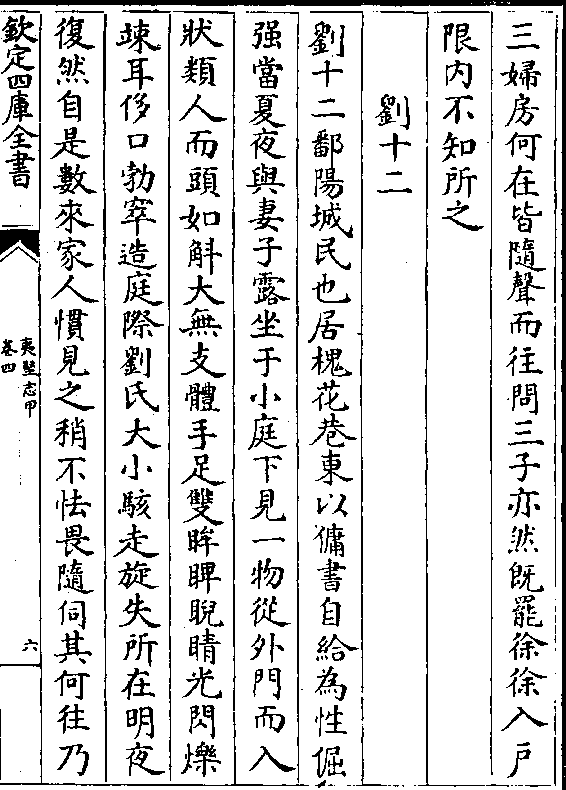 三婦房何在皆隨聲而往問三子亦然既罷徐徐入戶
限内不知所之
劉十二
劉十二鄱陽城民也居槐花巷東以傭書自給為性倔
强當夏夜與妻子露坐于小庭下見一物從外門而入
狀類人而頭如斛大無支體手足雙眸睥睨睛光閃爍
竦耳侈口勃窣造庭際劉氏大小駭走旋失所在明夜
復然自是數來家人慣見之稍不怯畏隨伺其何往乃
欽定四庫全書
夷堅志甲
卷四
六